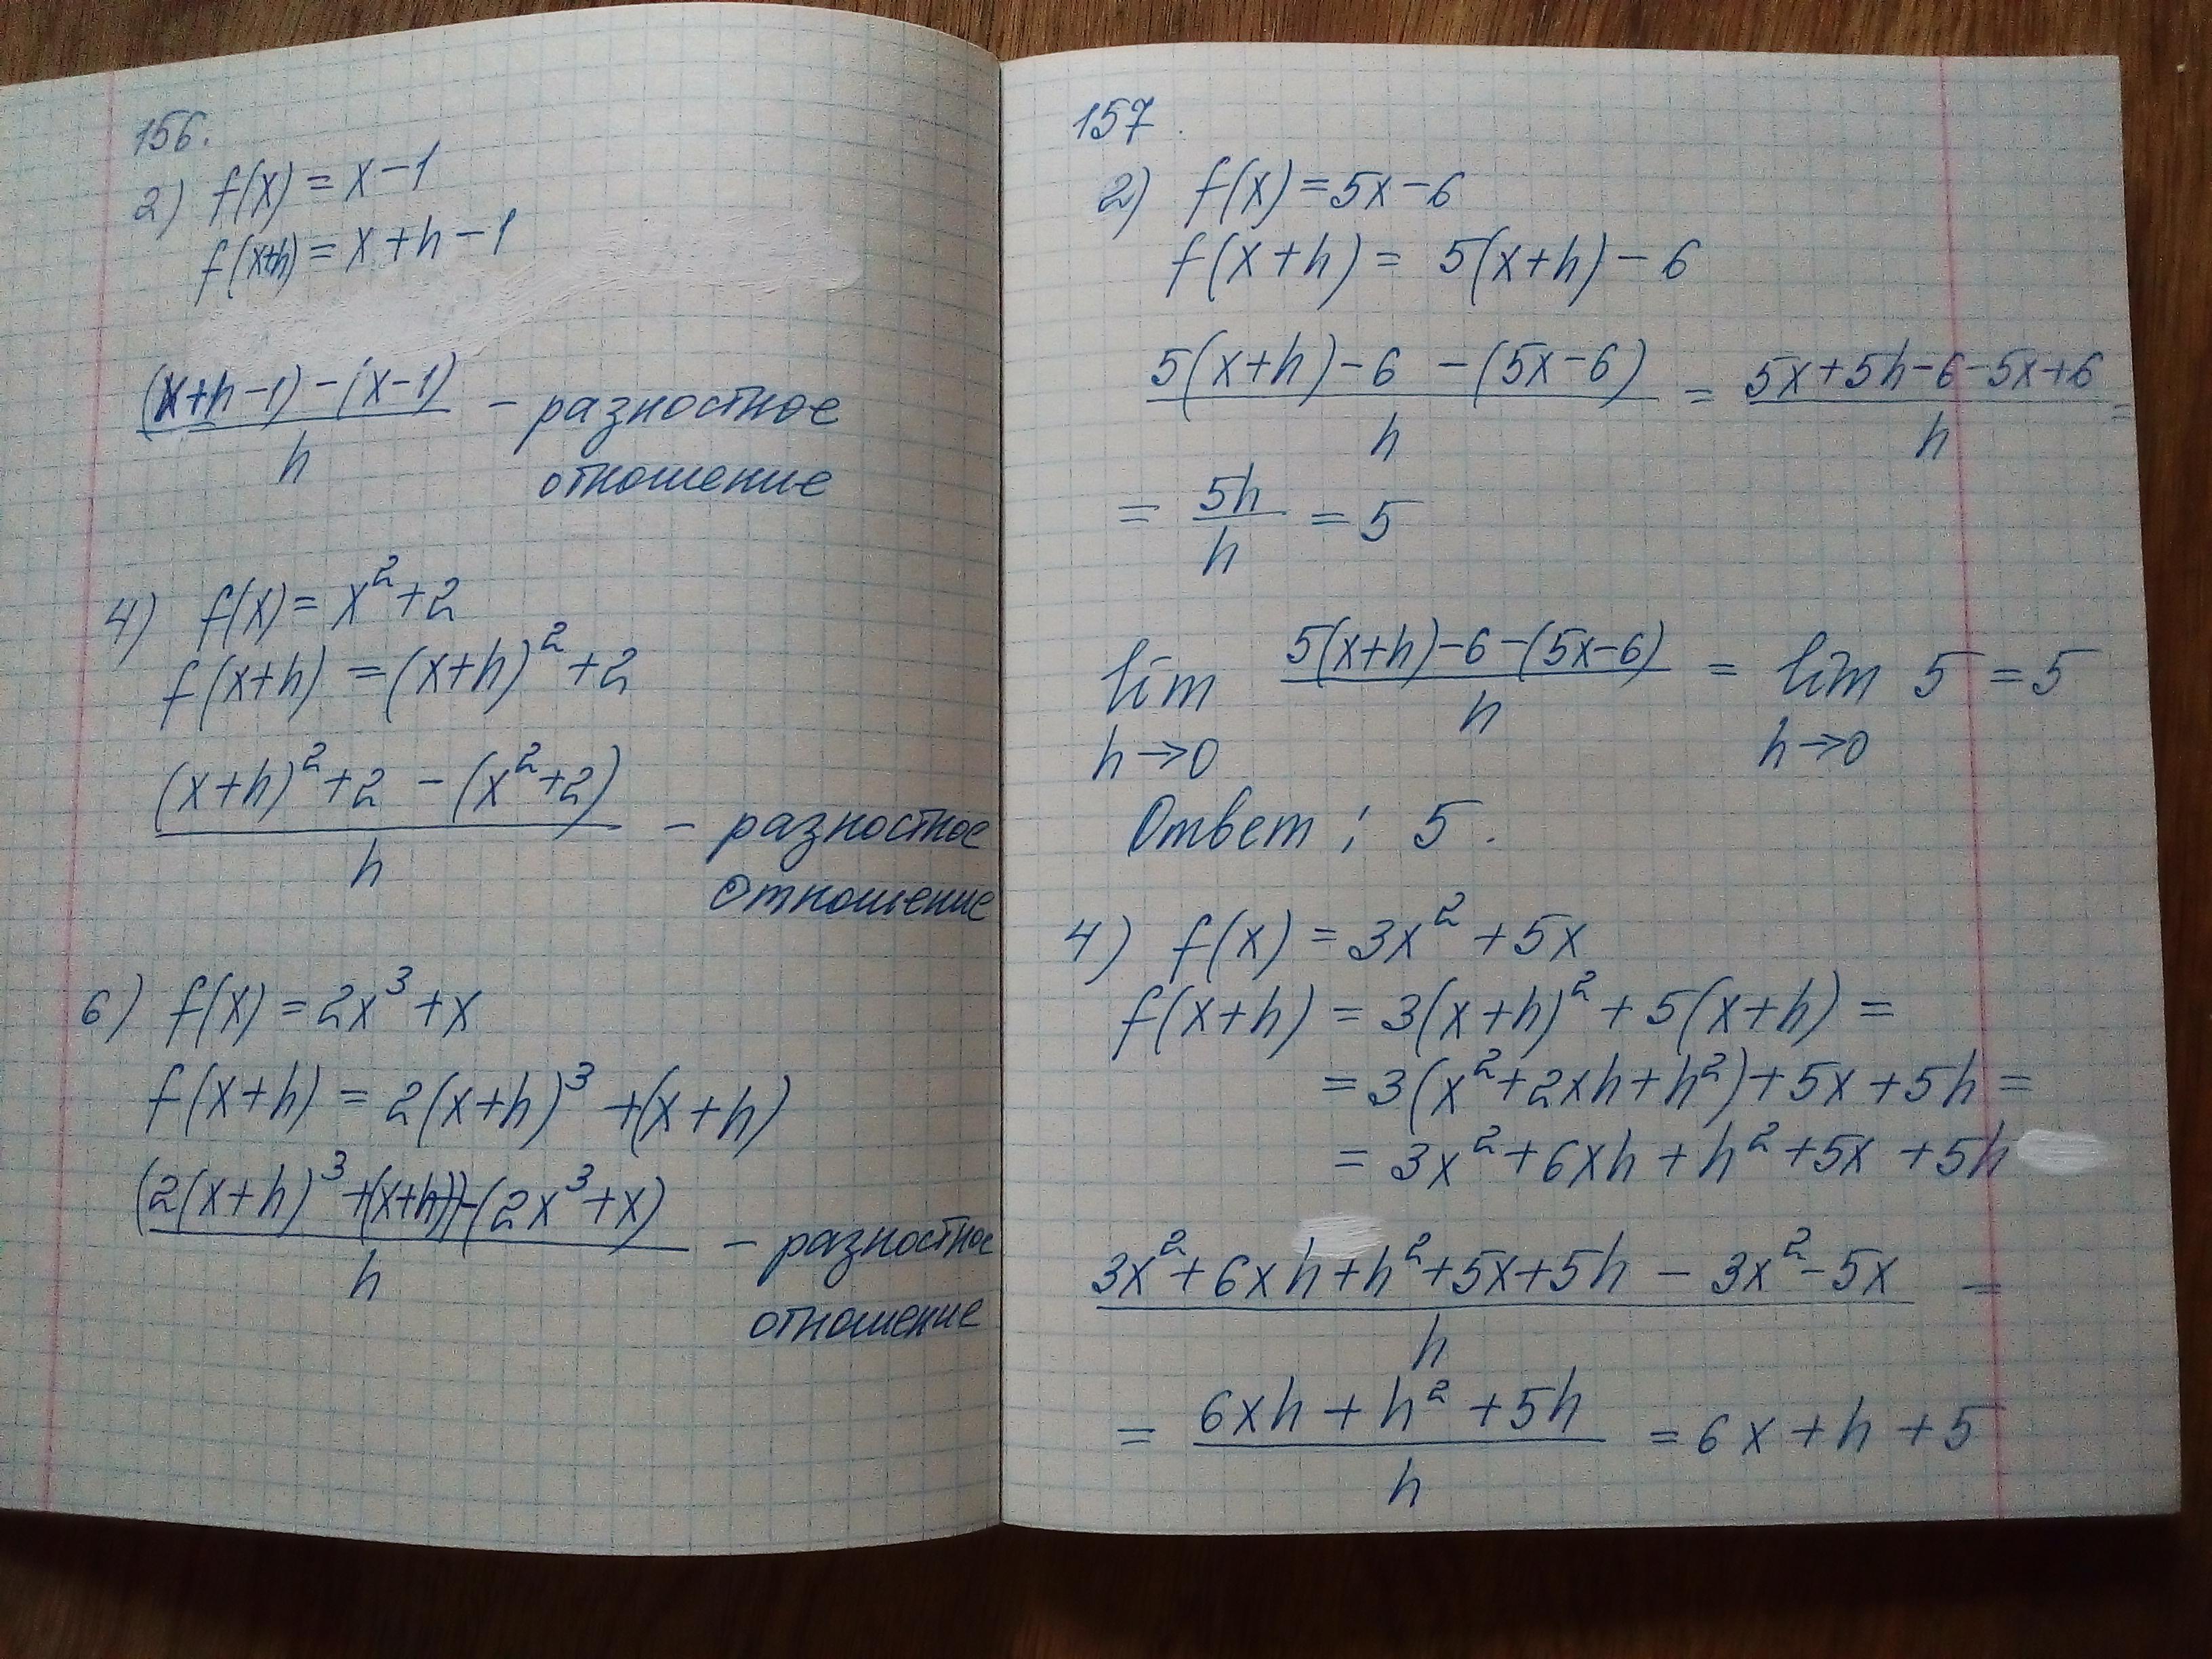 156.
2) f(x) = x − 1
f(x+h) = x + h − 1
((x+h−1) − (x−1))/h − разностное
отношение
4) f(x) = x² + 2
f(x+h) = (x+h)² + 2
((x+h)² + 2 − (x² + 2))/h − разностное
отношение
6) f(x) = 2x³ + x
f(x+h) = 2(x+h)³ + (x+h)
((2(x+h)³ + (x+h)) − (2x³ + x))/h − разностное
отношение
157.
2) f(x) = 5x − 6
f(x+h) = 5(x+h) − 6
(5(x+h) − 6 − (5x−6))/h = (5x+5h−6−5x+6)/h =
= 5h/h = 5
lim h→0 (5(x+h)−6−(5x−6))/h = lim h→0 5 = 5
Ответ: 5.
4) f(x) = 3x² + 5x
f(x+h) = 3(x+h)² + 5(x+h) =
= 3(x²+2xh+h²)+5x+5h =
= 3x²+6xh+h²+5x+5h
(3x²+6xh+h²+5x+5h − 3x²−5x)/h =
= (6xh + h² + 5h)/h = 6x + h + 5